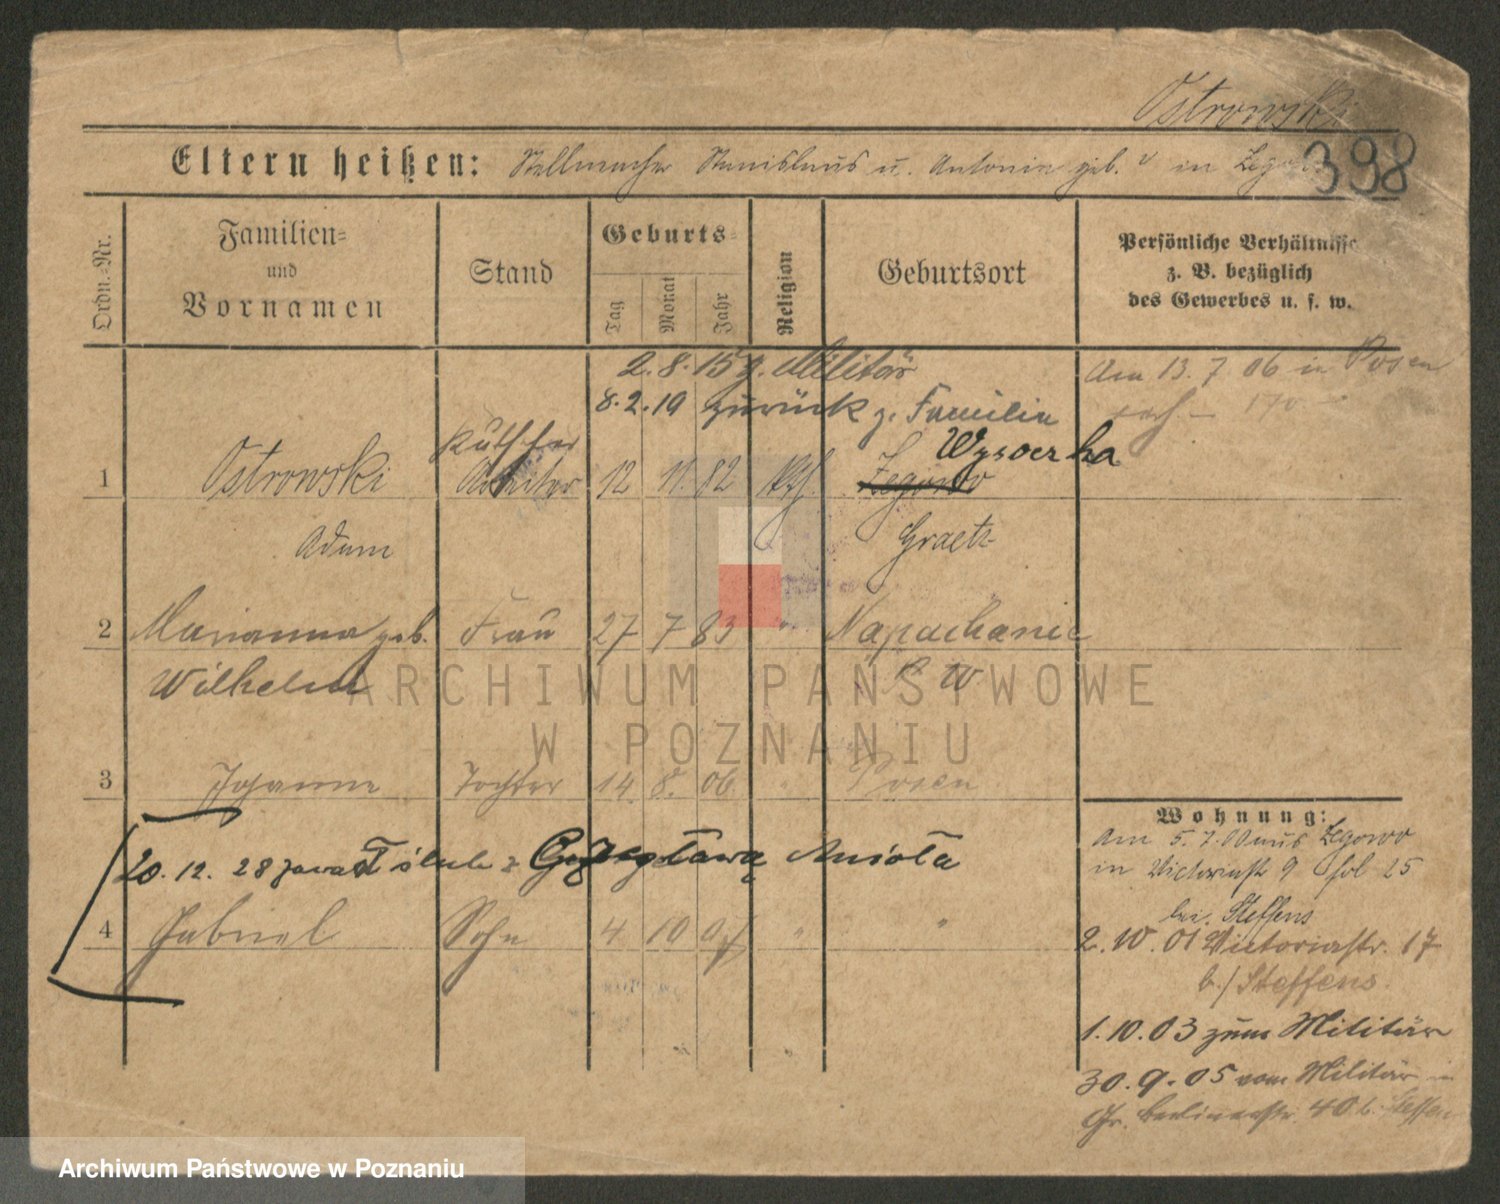 Ostrowski
398
Eltern heißen: Stellmacher Stanislaus u. Antonie geb. in
Ordn.-Nr.
Familien-
und
Vornamen
Stand
Geburts-
Tag
Monat
Jahr
Religion
Geburtsort
Persönliche Verhältnisse
z. B. bezüglich
des Gewerbes u. s. w.
2.8.15 z. Militär
8.2.19 zurück z. Familie
Am 13.7.06 in Posen
Kutscher
Wysoczka
1 Ostrowski Arbeiter 12 11. 82 Kth. Zegowo
Adam Graetz
2 Marianna geb. Frau 27 7 83 " Napachanie
Wilhelm P. W
3 Johanna Tochter 14 8. 06 " Posen
20.12.28 zawarł ślub z Anioła
4 Gabriel Sohn 4 10 07 " "
Wohnung:
Am 5.7.00 aus Zegowo
in Victoriastr 9
bei Steffens
2.10.01 Victoriastr. 17
b./Steffens
1.10.03 zum Militär
30.9.05 vom Militär in
Gr. Berlinerstr. 40 b. Steffens
ARCHIWUM PAŃSTWOWE
W POZNANIU
Archiwum Państwowe w Poznaniu